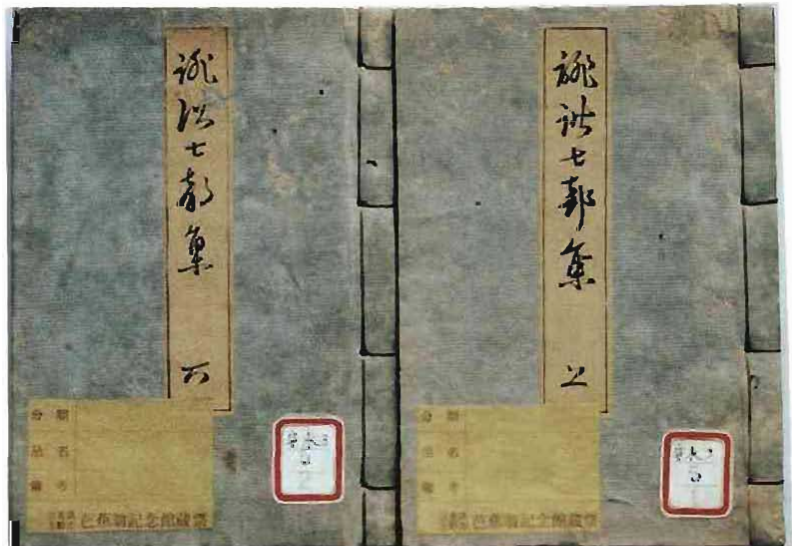 誹諧七部集 上
分類
品名
備考
芭蕉翁記念館蔵
誹諧七部集 下
分類
品名
備考
芭蕉翁記念館蔵